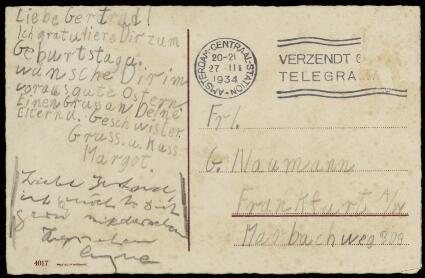 Liebe Gertrud!
Ich gratuliere Dir zum
Geburtstag.
wünsche Dir im
voraus gute Ostern.
Einen Gruß an Deine
Eltern u. Geschwister
Gruss. u. Kuss
Margot.
Liebe
ich Dich
gern wiedersehen
4017
AMSTERDAM-CENTRAAL-STATION
20-21
27 III
1934
VERZENDT
TELEGRA
Frl.
G. Naumann
Frankfurt A/M
Marbachweg